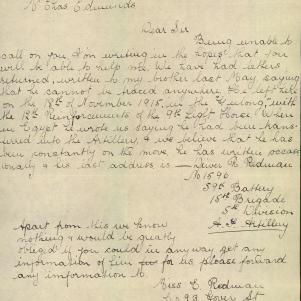 Mr Chas Edmunds
Dear Sir
Being unable to
call on you I am writing in the hopes that you
will be able to help me. We have had letters
returned, written to my brother last May, saying
that he cannot be traced anywhere. He left here
on the 18th of November 1915, in the Geelong, with
the 12th Reinforcements of the 9th Light Horse. When
in Egypt he wrote us saying he had been trans-
ferred into the Artillery, & we believe that he has
been constantly on the move, he has written occas-
ionally & his last address is — Driver R Redman
No 1596
59th Battery
15th Brigade
5th Division
A.I.F. Artillery
Apart from this we know
nothing & would be greatly
obliged if you could in anyway get any
information of him for us please forward
any information to.
Miss C. Redman
93 Gover St